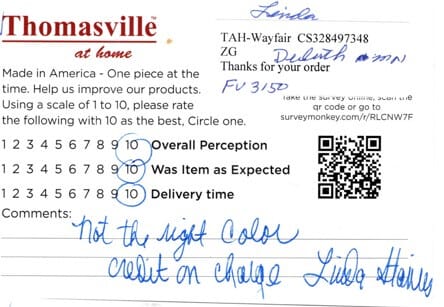 Linda
Thomasville
at home
TAH-Wayfair CS328497348
ZG
Duluth mn
Thanks for your order
FU 3150
Made in America - One piece at the
time. Help us improve our products.
Using a scale of 1 to 10, please rate
the following with 10 as the best, Circle one.
Take the survey online, scan the
qr code or go to
surveymonkey.com/r/RLCNW7F
1 2 3 4 5 6 7 8 9 10 Overall Perception
1 2 3 4 5 6 7 8 9 10 Was Item as Expected
1 2 3 4 5 6 7 8 9 10 Delivery time
Comments:
not the right Color
credit on charge Linda